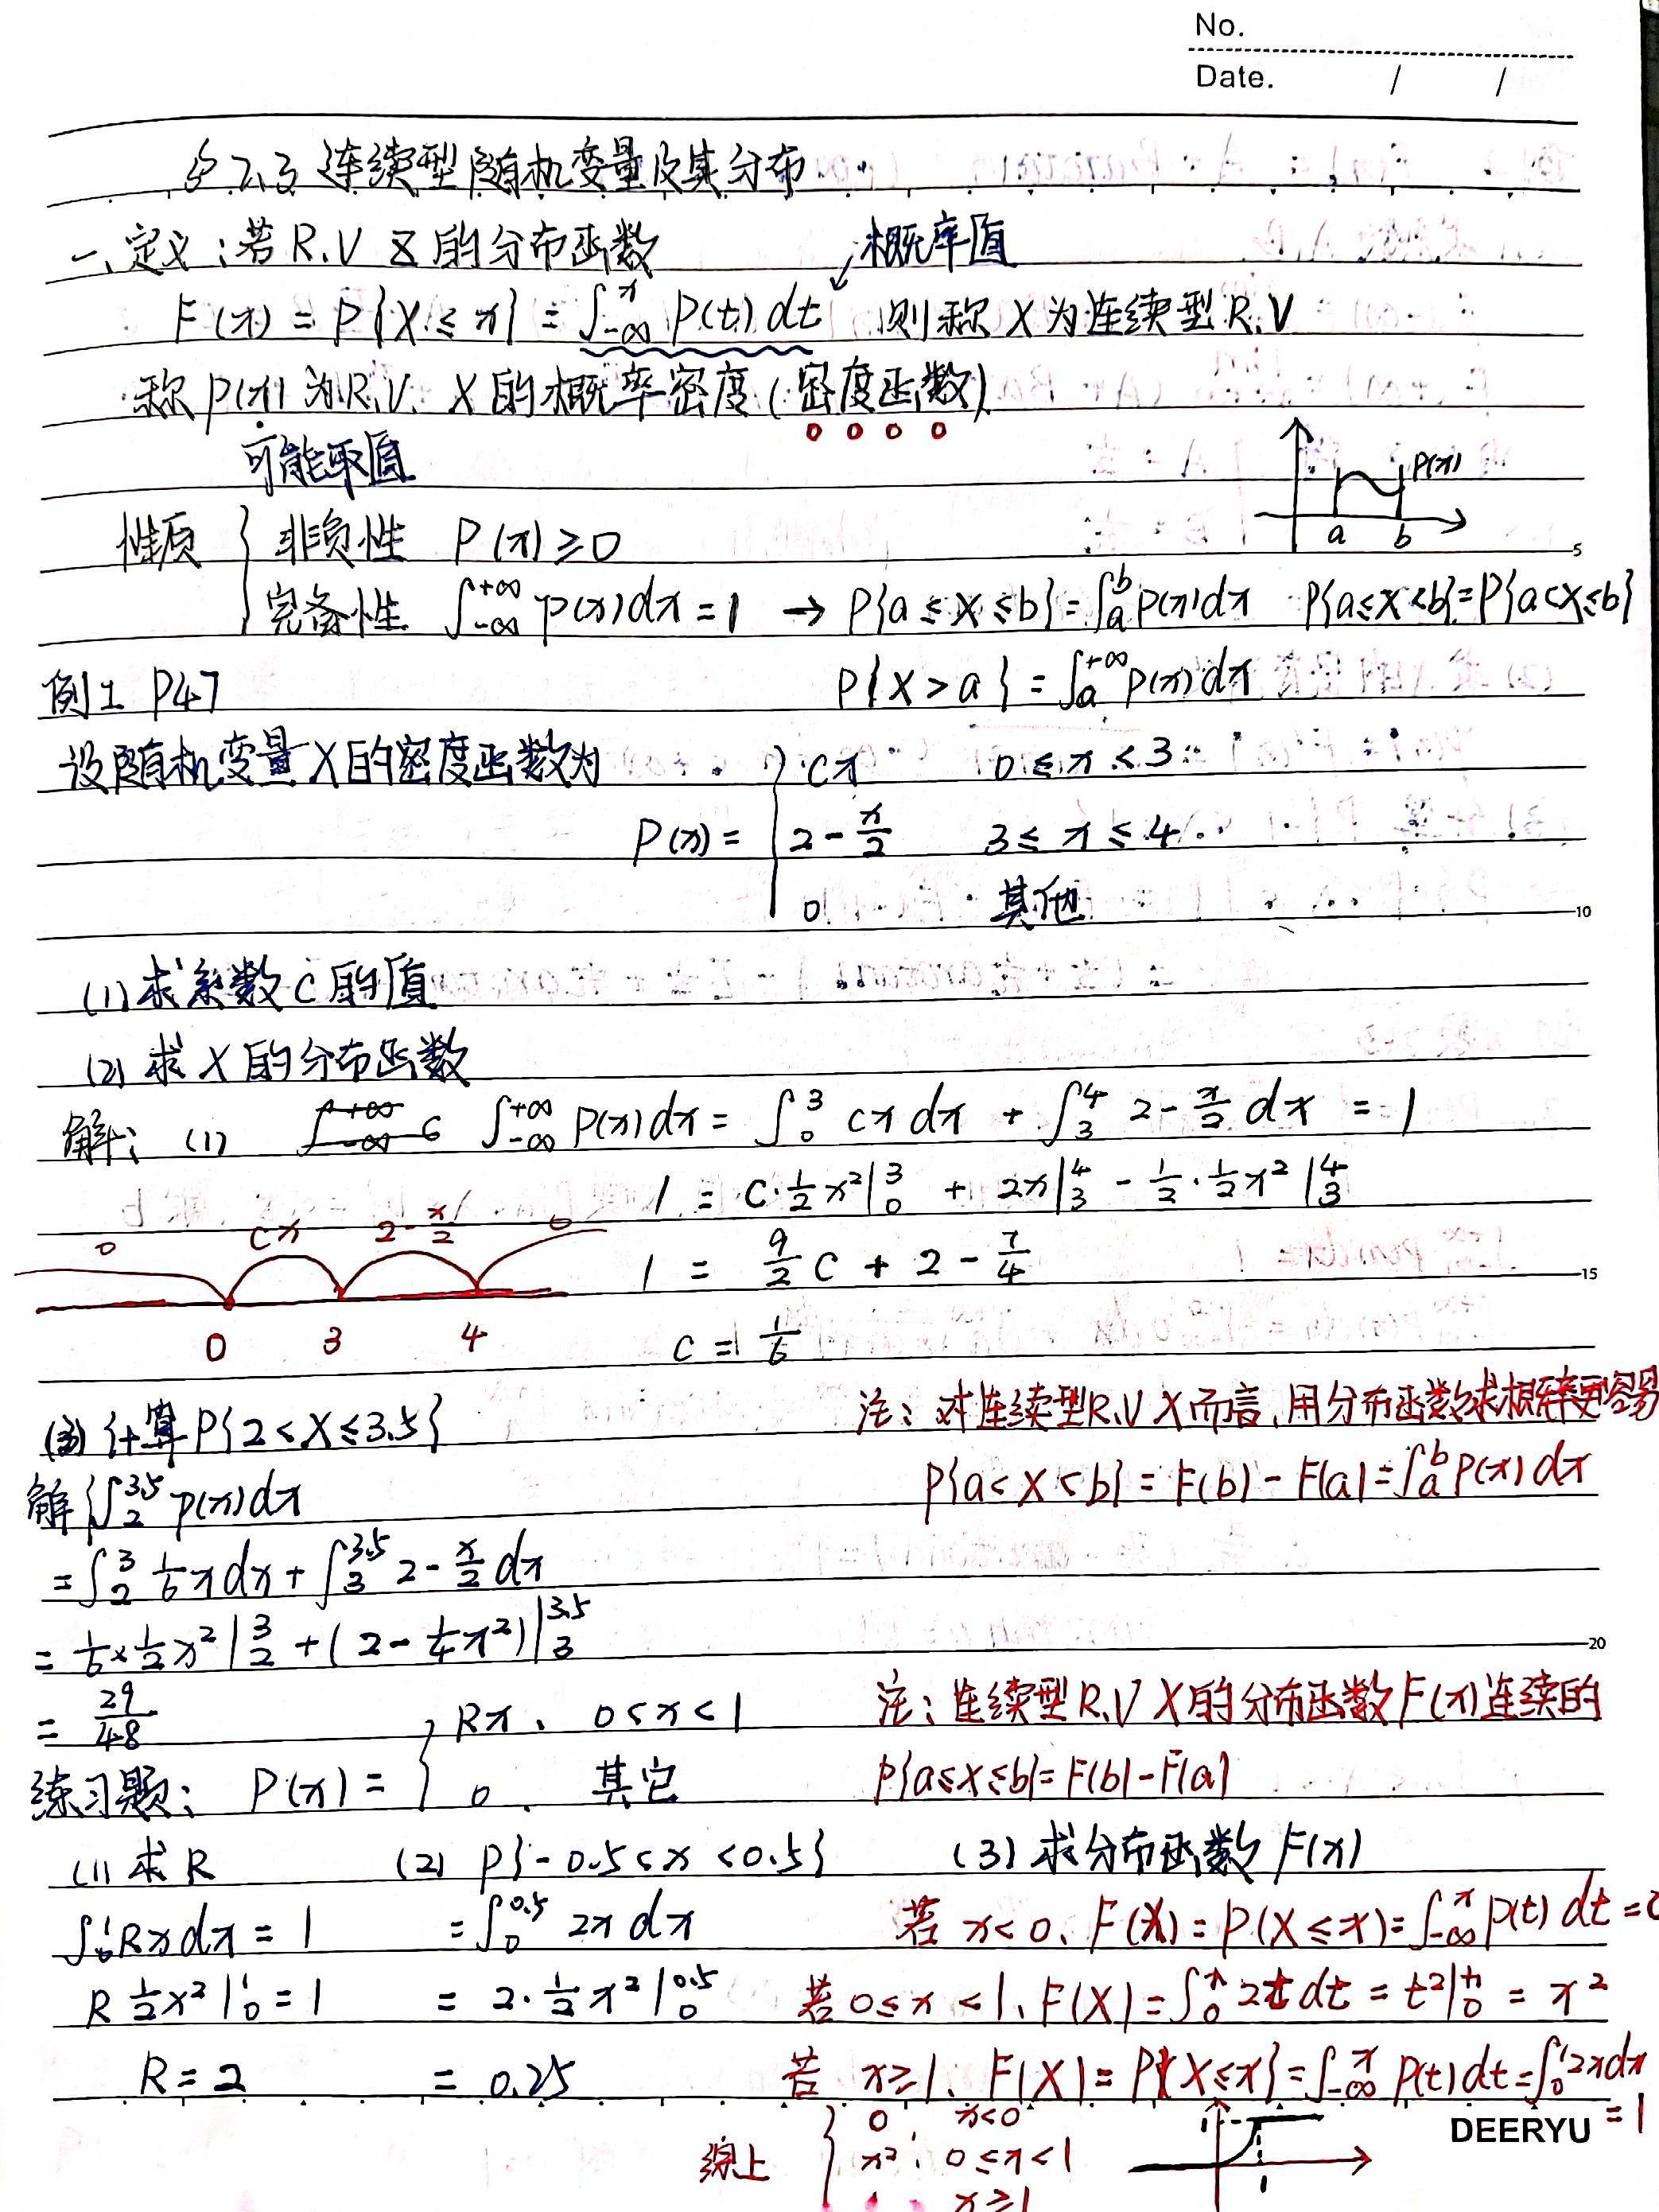 No.
Date. / /
§2.3 连续型随机变量及其分布
一、定义:若R.V X 的分布函数 概率值
F(x) = P{X ≤ x} = ∫_{-∞}^{x} P(t) dt 则称 X 为连续型 R.V
称 P(x) 为R.V. X 的概率密度 (密度函数)
可能取值
P(x)
a b
性质 { 非负性 P(x) ≥ 0
完备性 ∫_{-∞}^{+∞} P(x)dx = 1 → P{a ≤ X ≤ b} = ∫_a^b P(x)dx P{a≤X<b}=P{a<X≤b}
例1 P47 P{X > a} = ∫_a^{+∞} P(x)dx
设随机变量X的密度函数为
P(x) = { cx 0 ≤ x < 3
2 - x/2 3 ≤ x ≤ 4
0 其他
(1) 求系数 c 的值
(2) 求 X 的分布函数
解: (1) ∫_{-∞}^{+∞} P(x)dx = ∫_0^3 cx dx + ∫_3^4 2 - x/2 dx = 1
1 = c·1/2 x²|_0^3 + 2x|_3^4 - 1/2·1/2 x²|_3^4
0 cx 2-x/2 0
1 = 9/2 c + 2 - 7/4
0 3 4
c = 1/6
注: 对连续型R.V X而言,用分布函数求概率更容易
(3) 计算 P{2 < X ≤ 3.5}
P{a < X < b} = F(b) - F(a) = ∫_a^b P(x) dx
解 ∫_2^{3.5} p(x)dx
= ∫_2^3 1/6 x dx + ∫_3^{3.5} 2 - x/2 dx
= 1/6 × 1/2 x²|_2^3 + (2 - 1/4 x²)|_3^{3.5}
= 29/48
注: 连续型R.V X的分布函数F(x)连续的
练习题: P(x) = { Rx、 0 ≤ x < 1
0、 其它
P{a≤X≤b} = F(b)-F(a)
(1) 求R (2) P{-0.5 ≤ x < 0.5} (3) 求分布函数 F(x)
∫_0^1 Rx dx = 1 = ∫_0^{0.5} 2x dx 若 x<0、F(X) = P(X ≤ x) = ∫_{-∞}^x P(t) dt = 0
R 1/2 x²|_0^1 = 1 = 2·1/2 x²|_0^{0.5} 若 0≤x<1、F(X) = ∫_0^x 2t dt = t²|_0^x = x²
R = 2 = 0.25 若 x≥1、F(X) = P{X≤x} = ∫_{-∞}^x P(t)dt = ∫_0^1 2x dx = 1
综上 { 0 x<0
x² 0 ≤ x < 1
1 x≥1
1
1
DEERYU
5
10
15
20